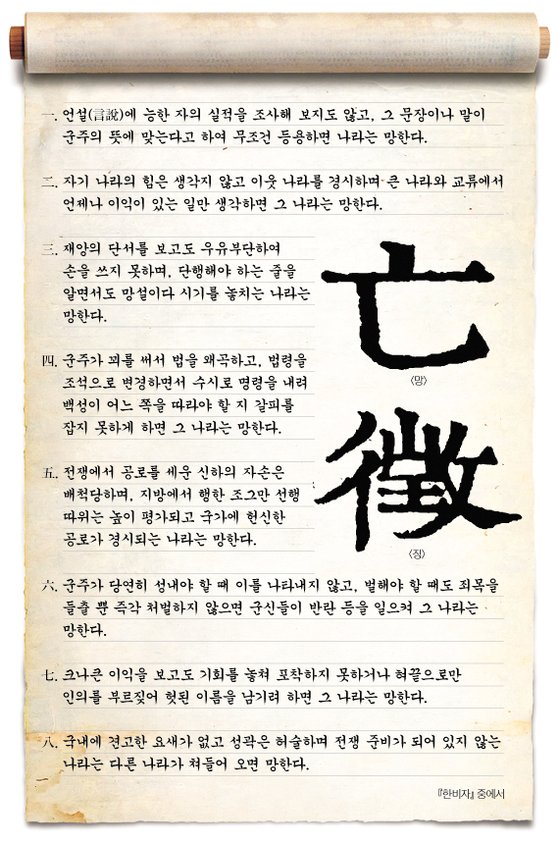 一. 언설(言說)에 능한 자의 실적을 조사해 보지도 않고, 그 문장이나 말이
군주의 뜻에 맞는다고 하여 무조건 등용하면 나라는 망한다.
二. 자기 나라의 힘은 생각지 않고 이웃 나라를 경시하며 큰 나라와 교류에서
언제나 이익이 있는 일만 생각하면 그 나라는 망한다.
三. 재앙의 단서를 보고도 우유부단하여
손을 쓰지 못하며, 단행해야 하는 줄을
알면서도 망설이다 시기를 놓치는 나라는
망한다.
四. 군주가 꾀를 써서 법을 왜곡하고, 법령을
조석으로 변경하면서 수시로 명령을 내려
백성이 어느 쪽을 따라야 할 지 갈피를
잡지 못하게 하면 그 나라는 망한다.
五. 전쟁에서 공로를 세운 신하의 자손은
배척당하며, 지방에서 행한 조그만 선행
따위는 높이 평가되고 국가에 헌신한
공로가 경시되는 나라는 망한다.
亡
〈망〉
徵
〈징〉
六. 군주가 당연히 성내야 할 때 이를 나타내지 않고, 벌해야 할 때도 죄목을
들출 뿐 즉각 처벌하지 않으면 군신들이 반란 등을 일으켜 그 나라는
망한다.
七. 크나큰 이익을 보고도 기회를 놓쳐 포착하지 못하거나 혀끝으로만
인의를 부르짖어 헛된 이름을 남기려 하면 그 나라는 망한다.
八. 국내에 견고한 요새가 없고 성곽은 허술하며 전쟁 준비가 되어 있지 않는
나라는 다른 나라가 쳐들어 오면 망한다.
『한비자』 중에서